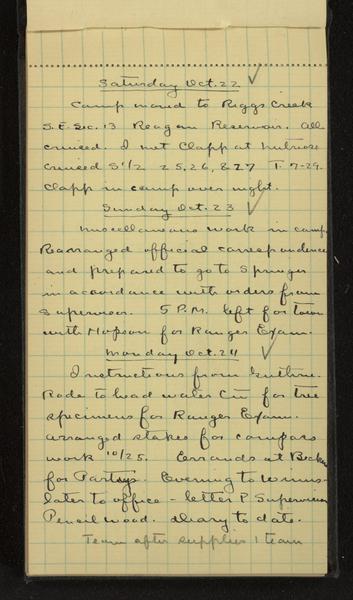 Saturday Oct. 22 ✓
Camp moved to Riggs Creek
S.E. Sec. 13 Reagan Reservoir. All
cruised. I met Clapp at
cruised S 1/2 25, 26, & 27 T. 7-29.
Clapp in camp over night.
Sunday Oct. 23 ✓
Miscellaneous work in camp.
Rearranged official correspondence
and prepared to go to Springer
in accordance with orders from
Supervisor. 5 P.M. left for town
with Hopson for Ranger Exam.
Monday Oct. 24 ✓
Instructions from Guthrie.
Rode to head water for tree
specimens for Ranger Exam.
Arranged stakes for compass
work 10/25. Errands at
for Partys. Evening to Wins-
later to office - letter Supervisor
Pencil wood. Diary to date.
Team after supplies 1 team